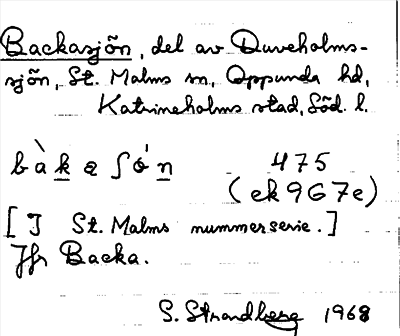 Backasjön, del av Duveholms-
sjön, St. Malms sn, Oppunda hd,
Katrineholms stad, Söd. l.
bàkaʃón 475
(ek 9G7e)
[I St. Malms nummerserie.]
Jfr Backa.
S. Strandberg 1968